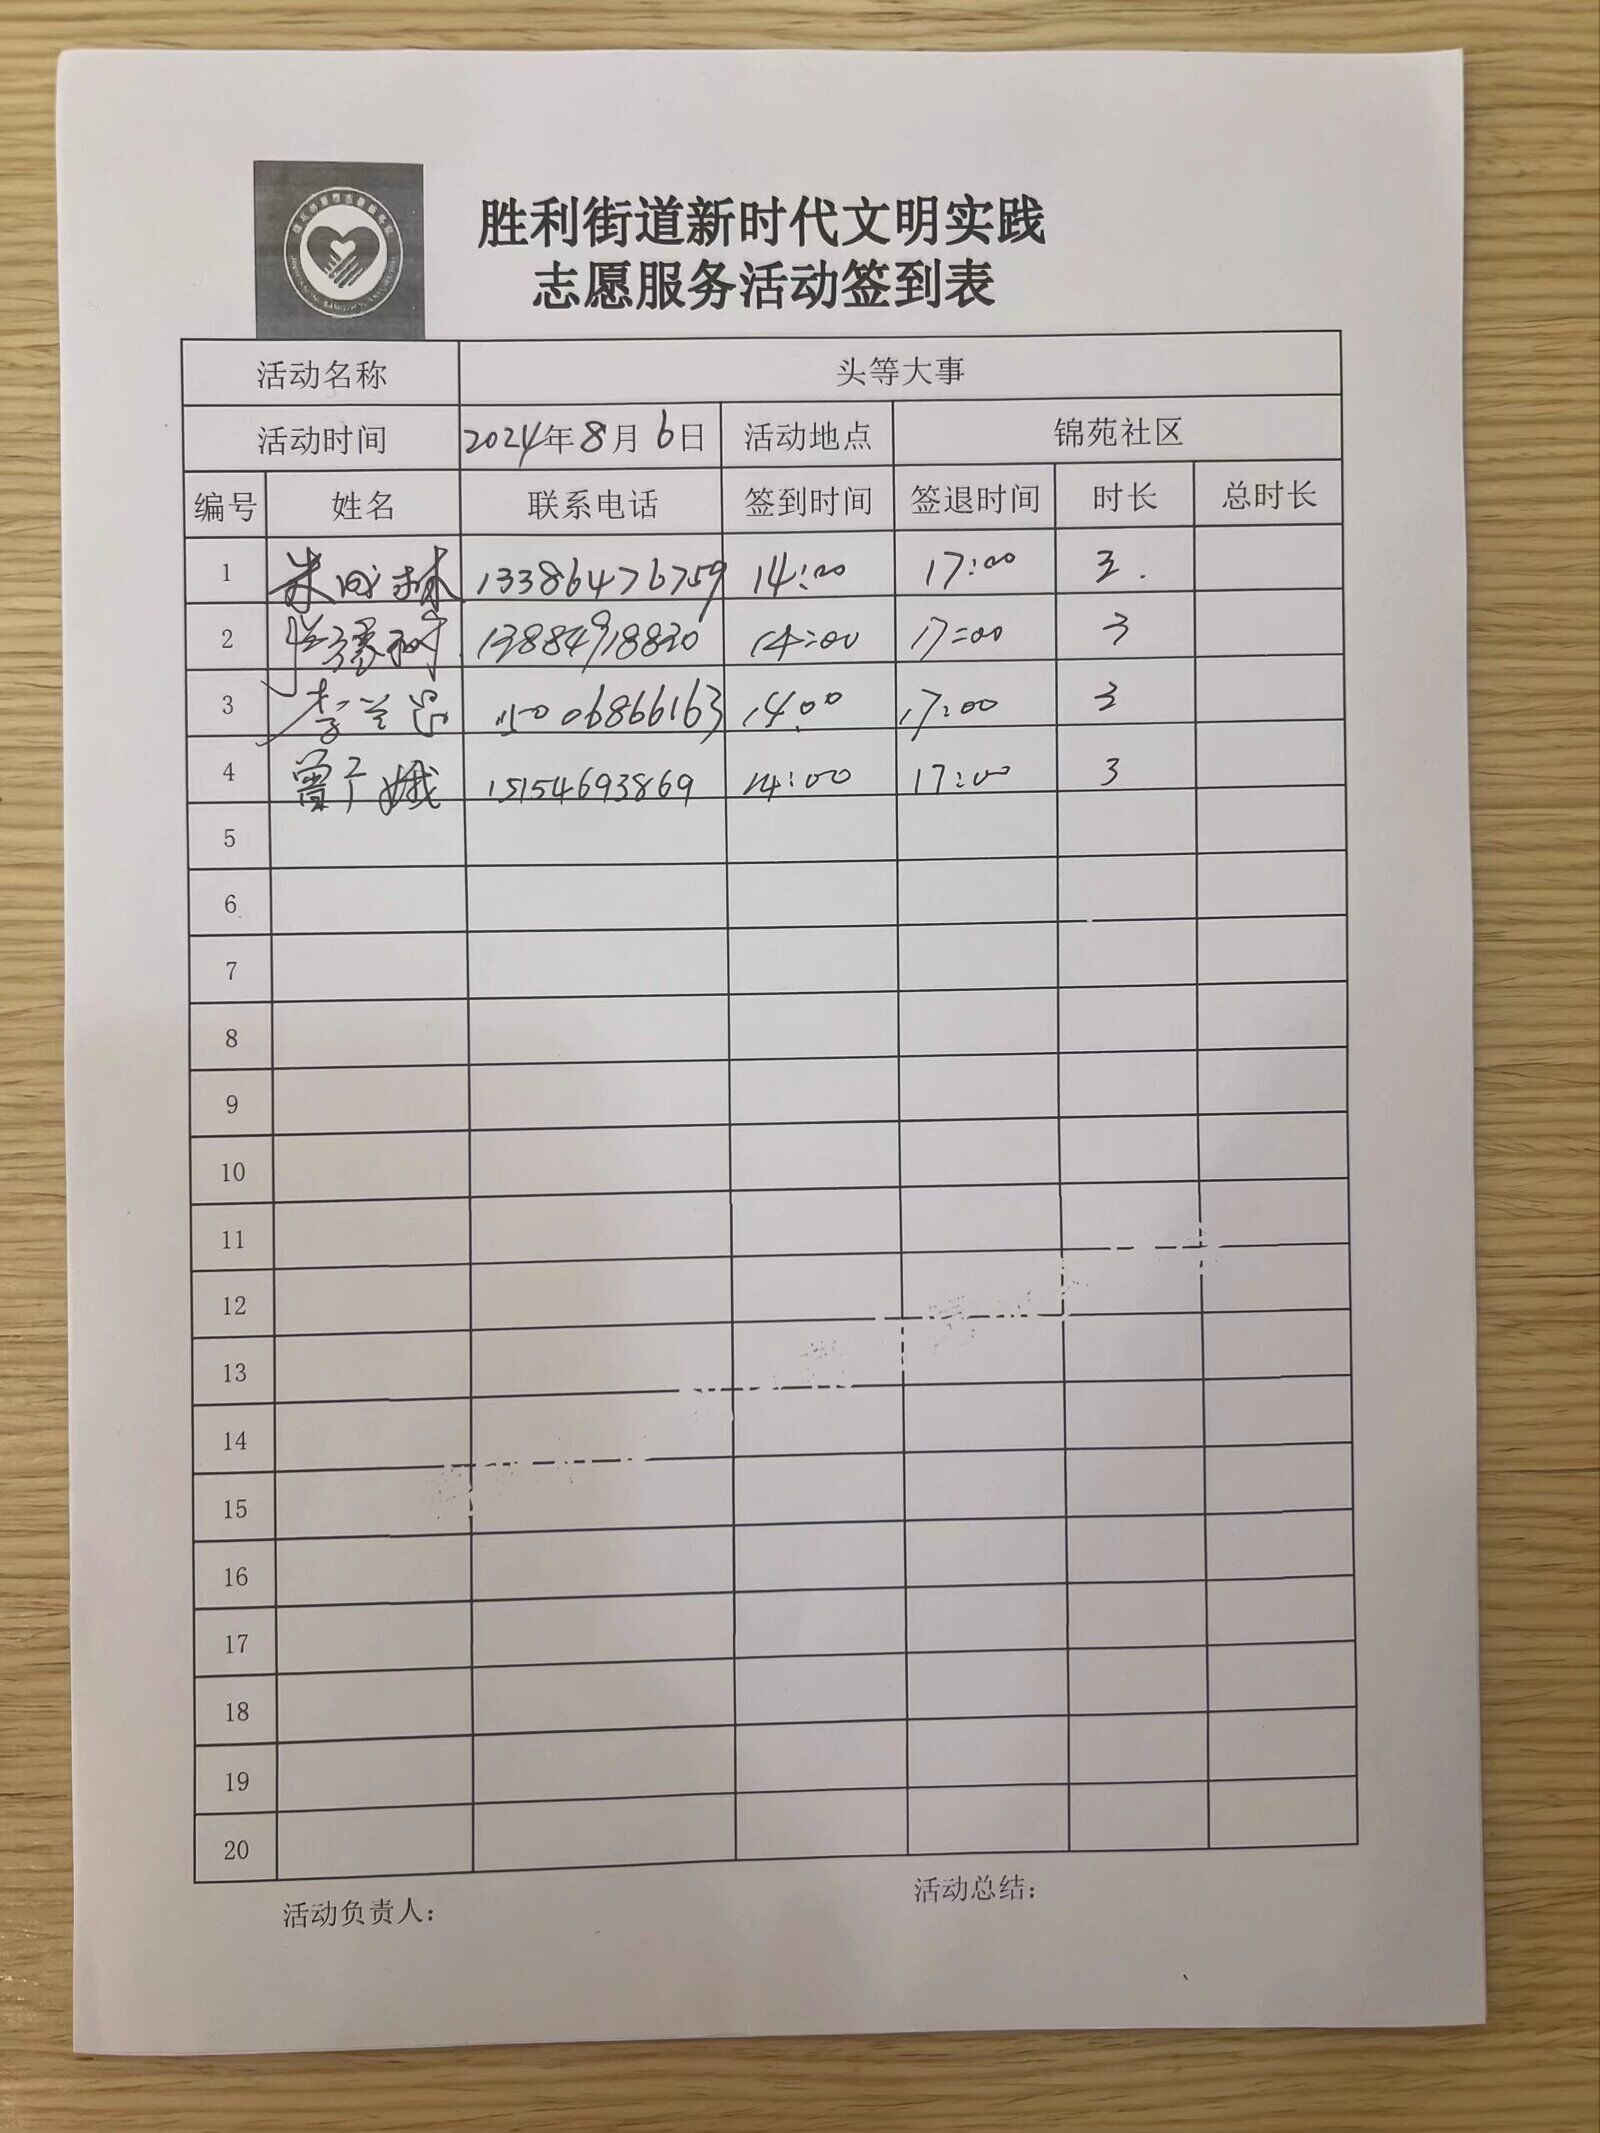 胜利街道新时代文明实践
志愿服务活动签到表
活动名称 头等大事
活动时间 2024年8月6日 活动地点 锦苑社区
编号 姓名 联系电话 签到时间 签退时间 时长 总时长
1 朱成林 13386476759 14:00 17:00 3.
2 13884918830 14:00 17:00 3
3 李兰 15006866163 14:00 17:00 3
4 曾广娥 15154693869 14:00 17:00 3
5
6
7
8
9
10
11
12
13
14
15
16
17
18
19
20
活动负责人： 活动总结：